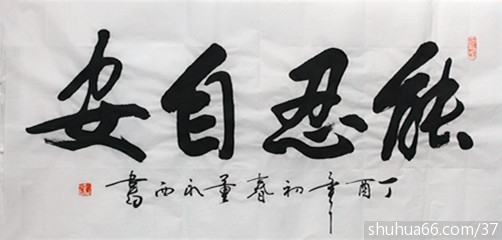 能忍自安
丁酉年初春董永西書
shuhua66.com/37